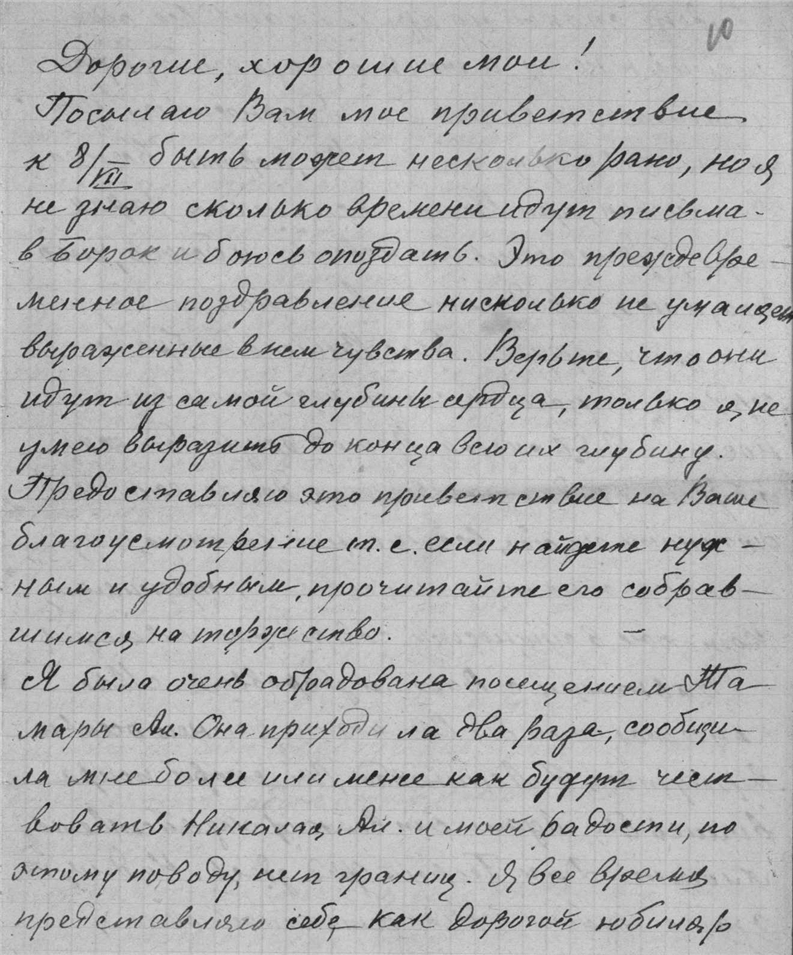 10
Дорогие, хорошие мои!
Посылаю Вам мое приветствие
к 8/VII быть может несколько рано, но я
не знаю сколько времени идут письма
в Борок и боюсь опоздать. Это преждевре-
менное поздравление нисколько не умаляет
выраженные в нем чувства. Верьте, что они
идут из самой глубины сердца, только я не
умею выразить до конца всю их глубину.
Предоставляю это приветствие на Ваше
благоусмотрение т.е. если найдете нуж-
ным и удобным, прочитайте его собрав-
шимся на торжество.
Я была очень обрадована посещением Та-
мары Ал. Она приходила два раза, сообщи-
ла мне более или менее как будут чест-
вовать Николая Ал. и моей радости, по
этому поводу, нет границ. Я все время
представляю себе как дорогой юбиляр